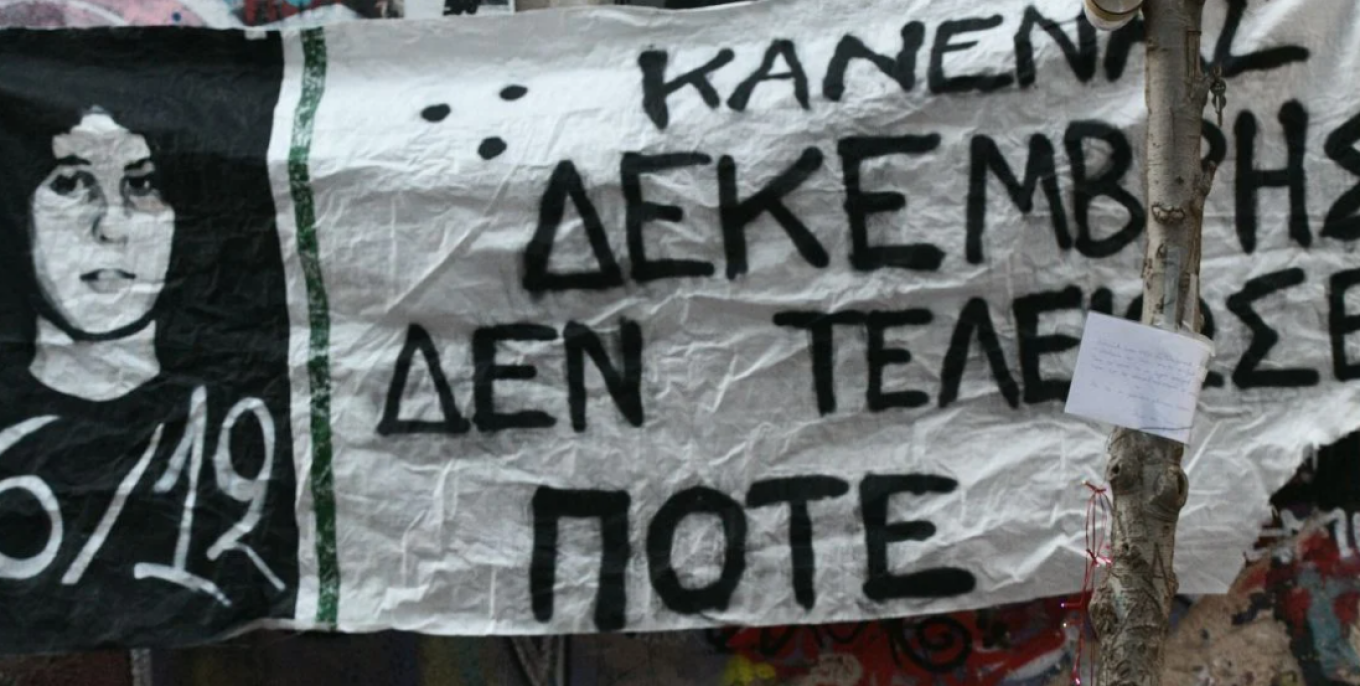 6/12
ΚΑΝΕΝΑΣ
ΔΕΚΕΜΒΡΗΣ
ΔΕΝ ΤΕΛΕΙΩΣΕ
ΠΟΤΕ